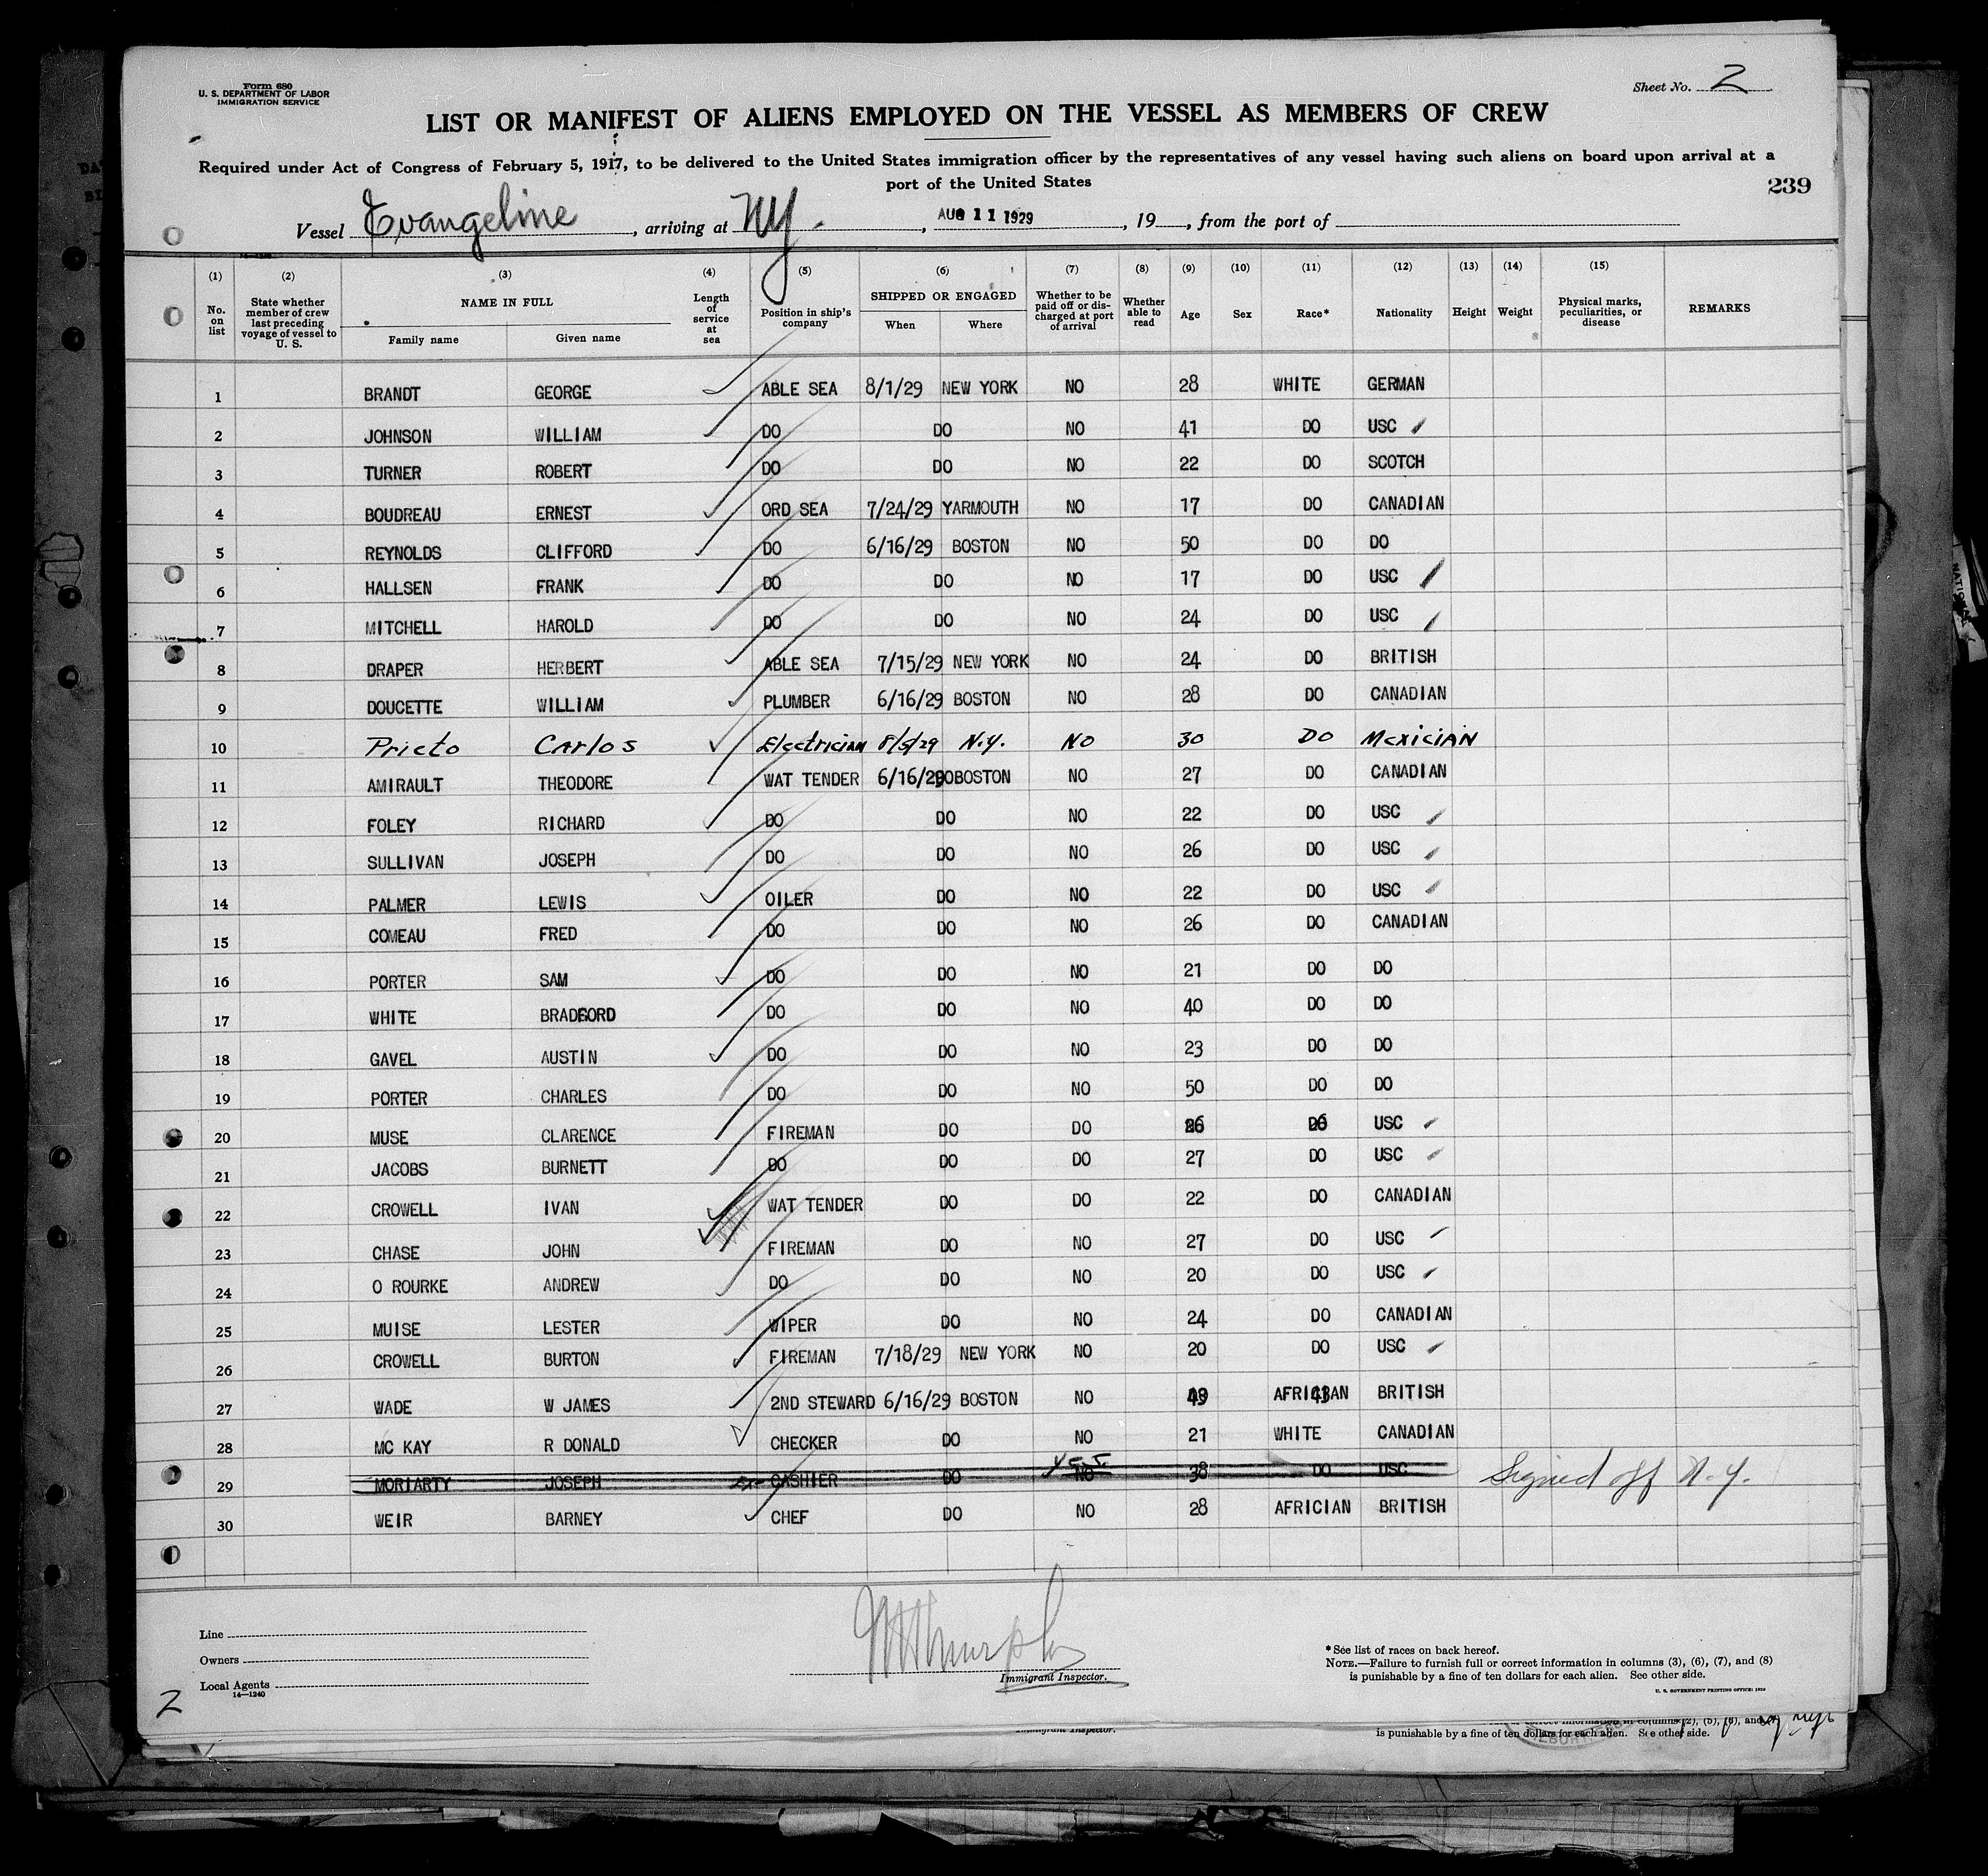 Form 680
U. S. DEPARTMENT OF LABOR
IMMIGRATION SERVICE
Sheet No. 2
LIST OR MANIFEST OF ALIENS EMPLOYED ON THE VESSEL AS MEMBERS OF CREW
Required under Act of Congress of February 5, 1917, to be delivered to the United States immigration officer by the representatives of any vessel having such aliens on board upon arrival at a
port of the United States
239
Vessel Evangeline, arriving at NY., AUG 11 1929, 19, from the port of
(1) (2) (3) (4) (5) (6) (7) (8) (9) (10) (11) (12) (13) (14) (15)
No. on list State whether member of crew last preceding voyage of vessel to U. S. NAME IN FULL Family name Given name Length of service at sea Position in ship's company SHIPPED OR ENGAGED When Where Whether to be paid off or discharged at port of arrival Whether able to read Age Sex Race* Nationality Height Weight Physical marks, peculiarities, or disease REMARKS
1 BRANDT GEORGE ABLE SEA 8/1/29 NEW YORK NO 28 WHITE GERMAN
2 JOHNSON WILLIAM DO DO NO 41 DO USC
3 TURNER ROBERT DO DO NO 22 DO SCOTCH
4 BOUDREAU ERNEST ORD SEA 7/24/29 YARMOUTH NO 17 DO CANADIAN
5 REYNOLDS CLIFFORD DO 6/16/29 BOSTON NO 50 DO DO
6 HALLSEN FRANK DO DO NO 17 DO USC
7 MITCHELL HAROLD DO DO NO 24 DO USC
8 DRAPER HERBERT ABLE SEA 7/15/29 NEW YORK NO 24 DO BRITISH
9 DOUCETTE WILLIAM PLUMBER 6/16/29 BOSTON NO 28 DO CANADIAN
10 Prieto Carlos Electrician 8/5/29 N.Y. NO 30 DO MEXICIAN
11 AMIRAULT THEODORE WAT TENDER 6/16/29 BOSTON NO 27 DO CANADIAN
12 FOLEY RICHARD DO DO NO 22 DO USC
13 SULLIVAN JOSEPH DO DO NO 26 DO USC
14 PALMER LEWIS OILER DO NO 22 DO USC
15 COMEAU FRED DO DO NO 26 DO CANADIAN
16 PORTER SAM DO DO NO 21 DO DO
17 WHITE BRADFORD DO DO NO 40 DO DO
18 GAVEL AUSTIN DO DO NO 23 DO DO
19 PORTER CHARLES DO DO NO 50 DO DO
20 MUSE CLARENCE FIREMAN DO DO 26 DO USC
21 JACOBS BURNETT DO DO DO 27 DO USC
22 CROWELL IVAN WAT TENDER DO DO 22 DO CANADIAN
23 CHASE JOHN FIREMAN DO NO 27 DO USC
24 O ROURKE ANDREW DO DO NO 20 DO USC
25 MUISE LESTER WIPER DO NO 24 DO CANADIAN
26 CROWELL BURTON FIREMAN 7/18/29 NEW YORK NO 20 DO USC
27 WADE W JAMES 2ND STEWARD 6/16/29 BOSTON NO AFRICIAN BRITISH
28 MC KAY R DONALD CHECKER DO NO 21 WHITE CANADIAN
29 MORIARTY JOSEPH CASHIER DO NO YES 38 DO USC Signed off N.Y.
30 WEIR BARNEY CHEF DO NO 28 AFRICIAN BRITISH
Line
Owners
Local Agents
14—1240
Immigrant Inspector.
*See list of races on back hereof.
NOTE.—Failure to furnish full or correct information in columns (3), (6), (7), and (8)
is punishable by a fine of ten dollars for each alien. See other side.
U. S. GOVERNMENT PRINTING OFFICE: 1929
2
Immigrant Inspector.
is punishable by a fine of ten dollars for each alien. See other side.